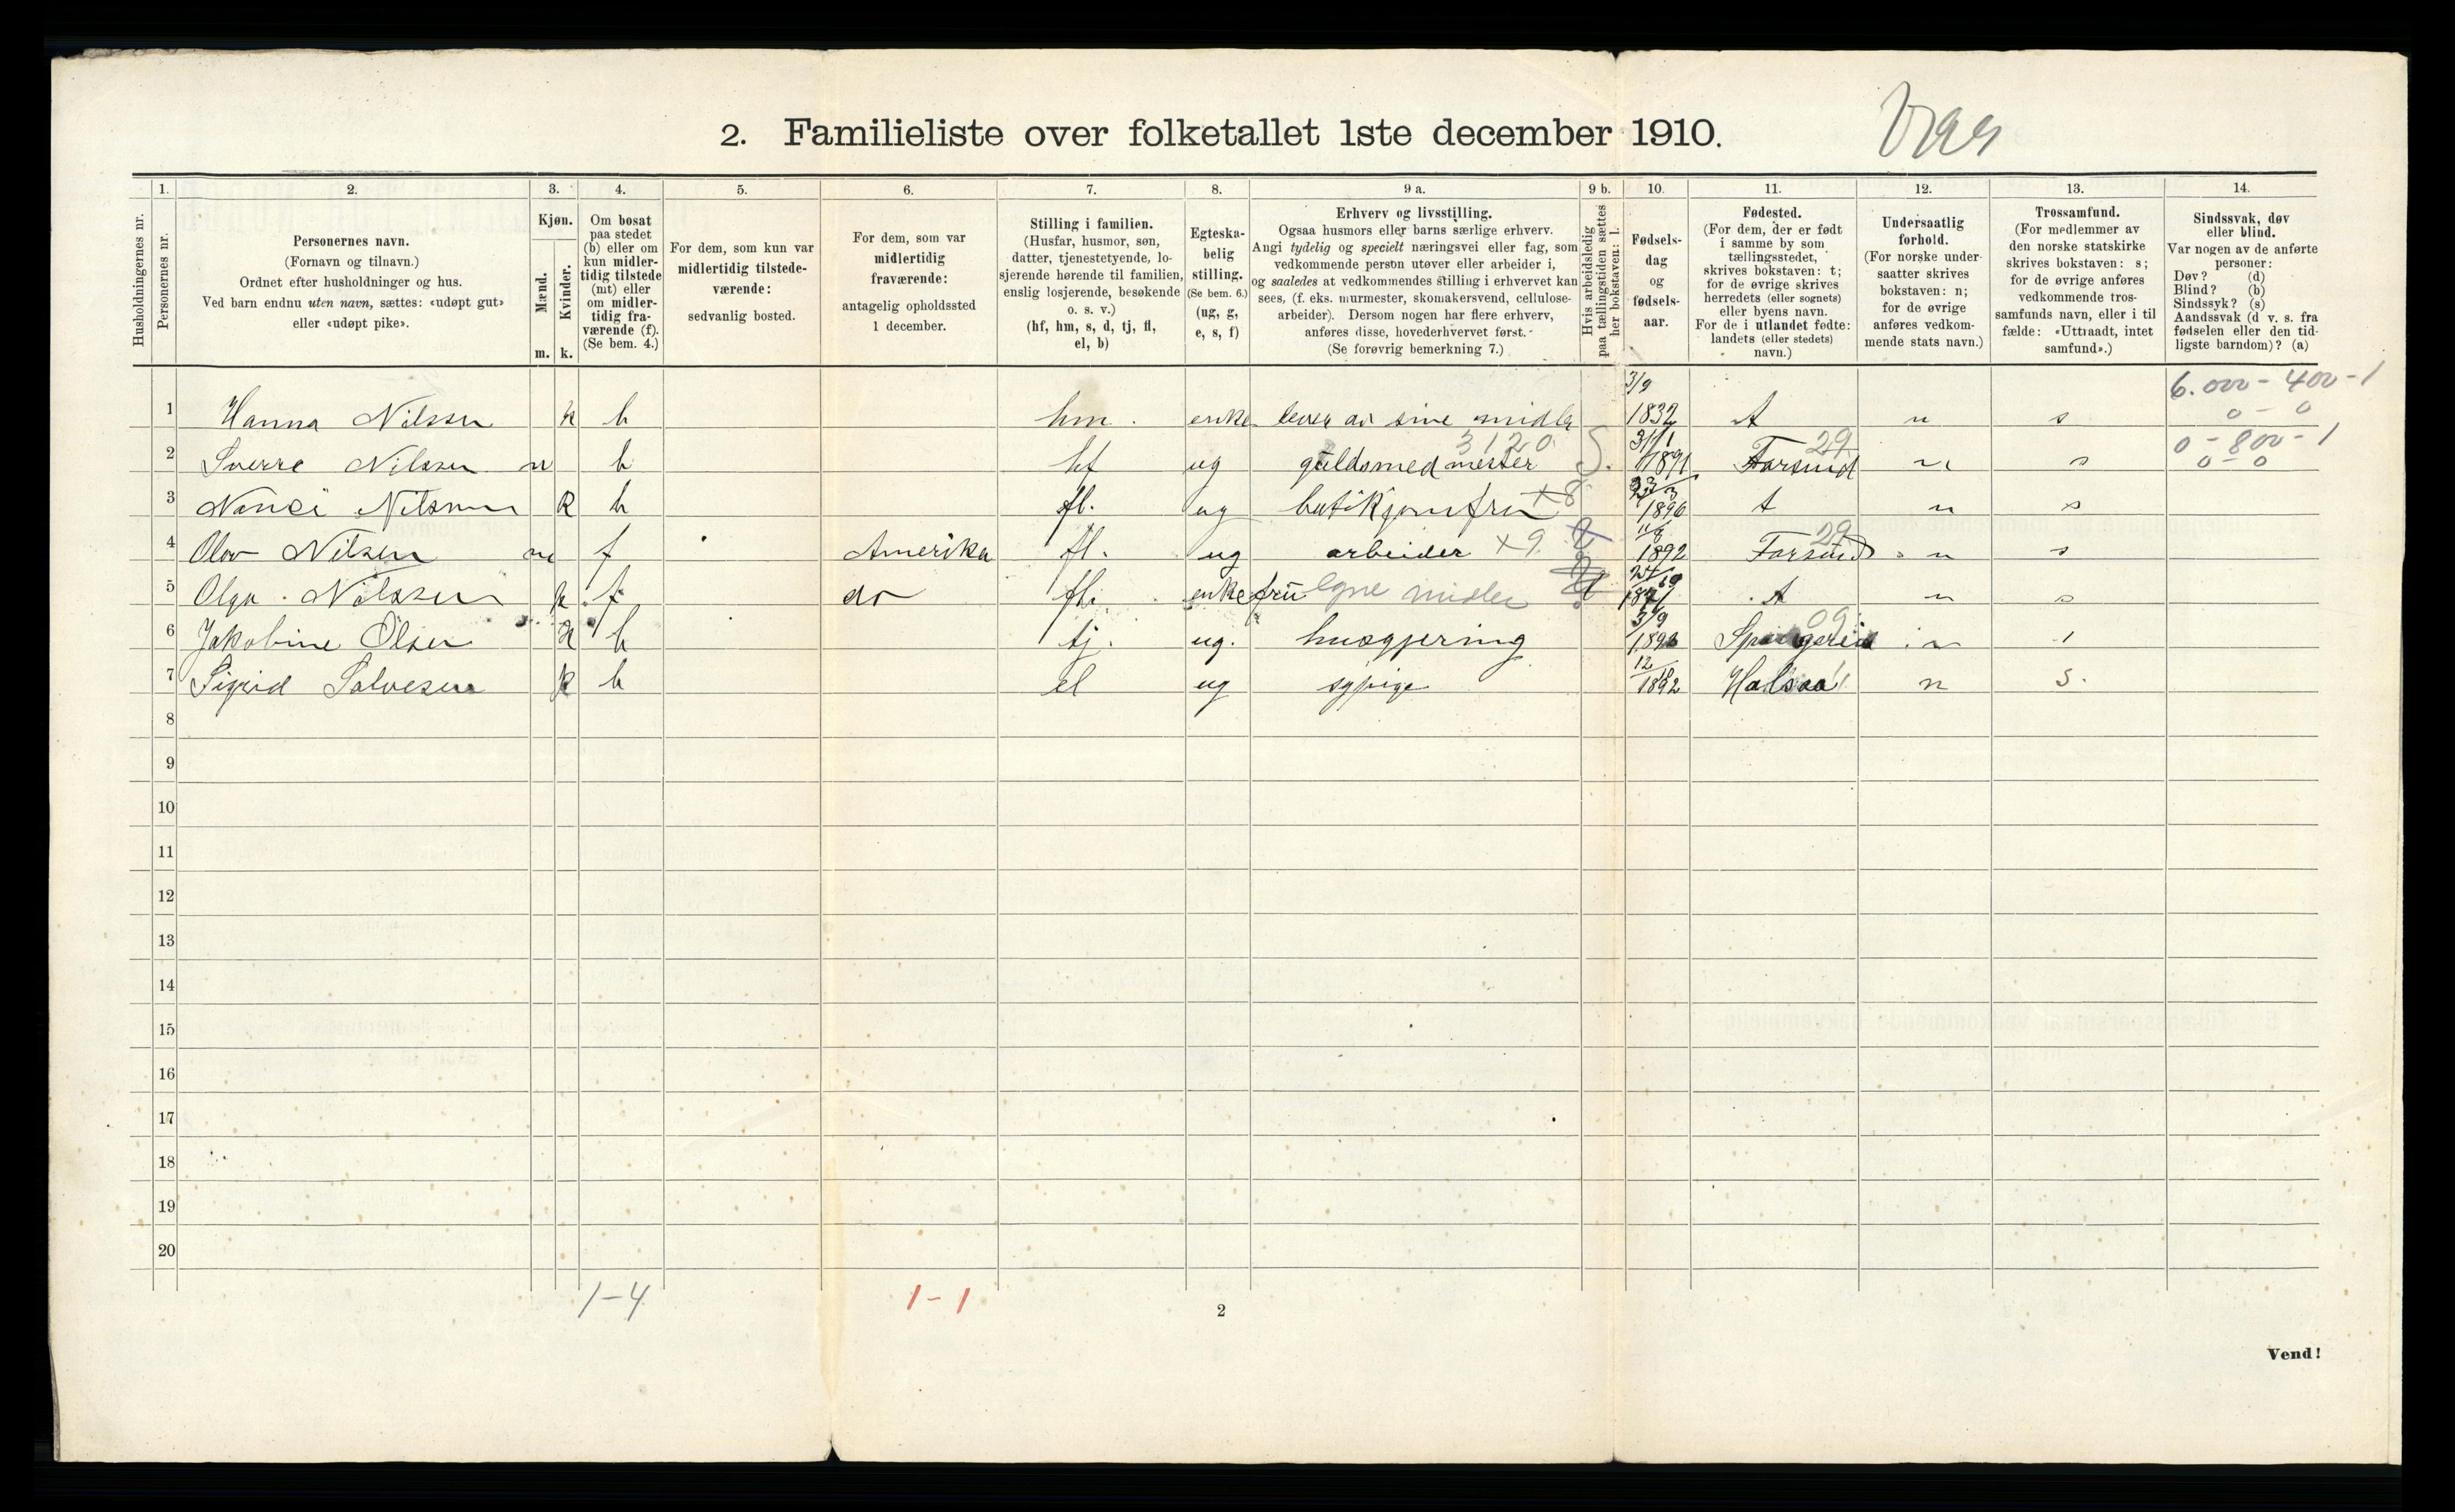 2. Familieliste over folketallet 1ste december 1910.
1. 2. 3. 4. 5. 6. 7. 8. 9 a. 9 b. 10. 11. 12. 13. 14.
Husholdningernes nr.
Personernes nr.
Personernes navn.
(Fornavn og tilnavn.)
Ordnet efter husholdninger og hus.
Ved barn endnu uten navn, sættes: «udøpt gut»
eller «udøpt pike».
Kjøn.
Mænd.
m.
Kvinder.
k.
Om bosat
paa stedet
(b) eller om
kun midler-
tidig tilstede
(mt) eller
om midler-
tidig fra-
værende (f).
(Se bem. 4.)
For dem, som kun var
midlertidig tilstede-
værende:
sedvanlig bosted.
For dem, som var
midlertidig
fraværende:
antagelig opholdssted
1 december.
Stilling i familien.
(Husfar, husmor, søn,
datter, tjenestetyende, lo-
sjerende hørende til familien,
enslig losjerende, besøkende
o. s. v.)
(hf, hm, s, d, tj, fl,
el, b)
Egteska-
belig
stilling.
(Se bem. 6.)
(ug, g,
e, s, f)
Erhverv og livsstilling.
Ogsaa husmors eller barns særlige erhverv.
Angi tydelig og specielt næringsvei eller fag, som
vedkommende person utøver eller arbeider i,
og saaledes at vedkommendes stilling i erhvervet kan
sees, (f. eks. murmester, skomakersvend, cellulose-
arbeider). Dersom nogen har flere erhverv,
anføres disse, hovederhvervet først.
(Se forøvrig bemerkning 7.)
Hvis arbeidsledig
paa tællingstiden sættes
her bokstaven: l.
Fødsels-
dag
og
fødsels-
aar.
Fødested.
(For dem, der er født
i samme by som
tællingsstedet,
skrives bokstaven: t;
for de øvrige skrives
herredets (eller sognets)
eller byens navn.
For de i utlandet fødte:
landets (eller stedets)
navn.)
Undersaatlig
forhold.
(For norske under-
saatter skrives
bokstaven: n;
for de øvrige
anføres vedkom-
mende stats navn.)
Trossamfund.
(For medlemmer av
den norske statskirke
skrives bokstaven: s;
for de øvrige anføres
vedkommende tros-
samfunds navn, eller i til
fælde: «Uttraadt, intet
samfund».)
Sindssvak, døv
eller blind.
Var nogen av de anførte
personer:
Døv? (d)
Blind? (b)
Sindssyk? (s)
Aandssvak (d v. s. fra
fødselen eller den tid-
ligste barndom)? (a)
6.000 - 400 - 1
0 - 0
1 Hanna Nilssen k b hm. enke lever av sine midler 3/9 1832 t n s
0 - 800 - 1
0 - 0
2 Sverre Nilssen m b hf ug guldsmedmester 3120 S. 31/1 1891 Farsund 29 n s
3 Nanci Nilssen k b fl. ug butikjomfru +8 1890 t n s
4 Olav Nilsen m f Amerika fl. ug arbeider +9 1892 Farsund 29 n s
5 Olga Nilssen k f do fl. enkefru egne midler t n s
6 Jakobine Olsen k b tj. ug. husgjerning 3/9 Spangereid 09 n
7 Sigrid Salvesen k b el ug sypige 1892 Halsaa n s.
8
9
10
11
12
13
14
15
16
17
18
19
20
1-4 1-1
2
Vend!